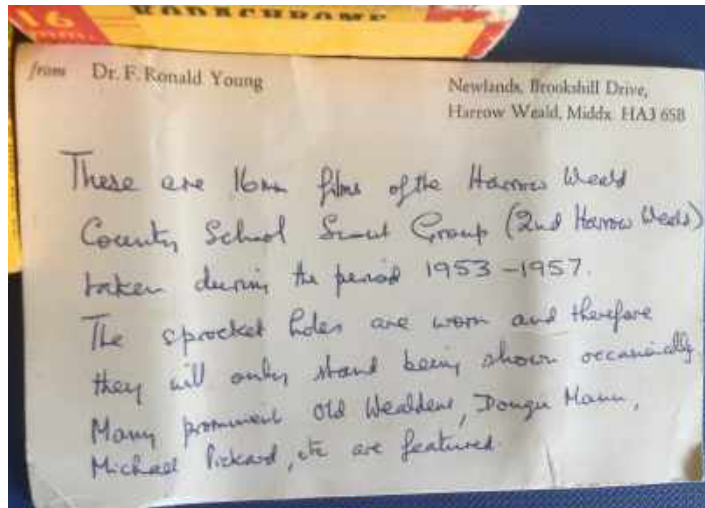 16 mm.
KODACHROME
from Dr. F. Ronald Young
Newlands, Brookshill Drive,
Harrow Weald, Middx. HA3 6SB
These are 16mm films of the Harrow Weald
County School Scout Group (2nd Harrow Weald)
taken during the period 1953-1957.
The sprocket holes are worn and therefore
they will only stand being shown occasionally.
Many prominent Old Wealdens, Dougie Mann,
Michael Pickard, etc are featured.